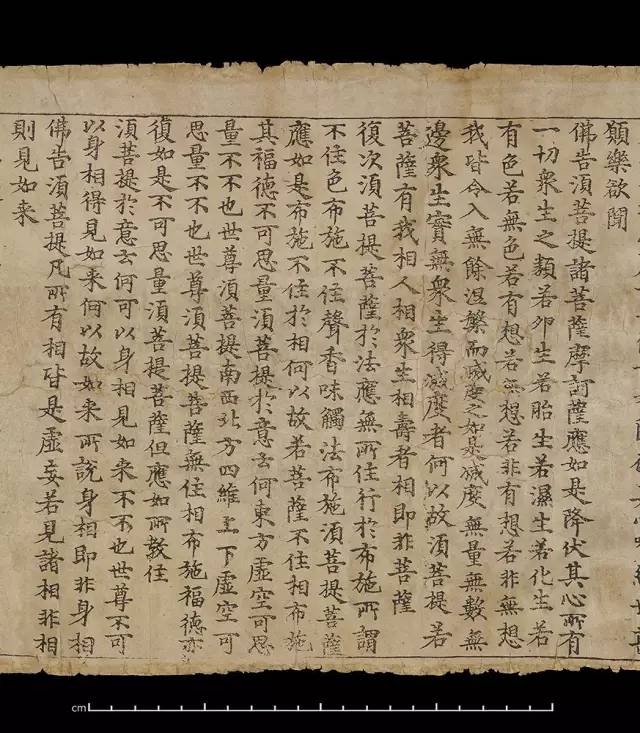 願樂欲聞
佛告須菩提諸菩薩摩訶薩應如是降伏其心所有
一切衆生之類若卵生若胎生若濕生若化生若
有色若無色若有想若無想若非有想若非無想
我皆令入無餘涅槃而滅度之如是滅度無量無數無
邊衆生實無衆生得滅度者何以故須菩提若
菩薩有我相人相衆生相壽者相即非菩薩
復次須菩提菩薩於法應無所住行於布施所謂
不住色布施不住聲香味觸法布施須菩提菩薩
應如是布施不住於相何以故若菩薩不住相布施
其福德不可思量須菩提於意云何東方虛空可思
量不不也世尊須菩提南西北方四維上下虛空可
思量不不也世尊須菩提菩薩無住相布施福德亦
復如是不可思量須菩提菩薩但應如所教住
須菩提於意云何可以身相見如來不不也世尊不可
以身相得見如來何以故如來所說身相即非身相
佛告須菩提凡所有相皆是虛妄若見諸相非相
則見如來
cm